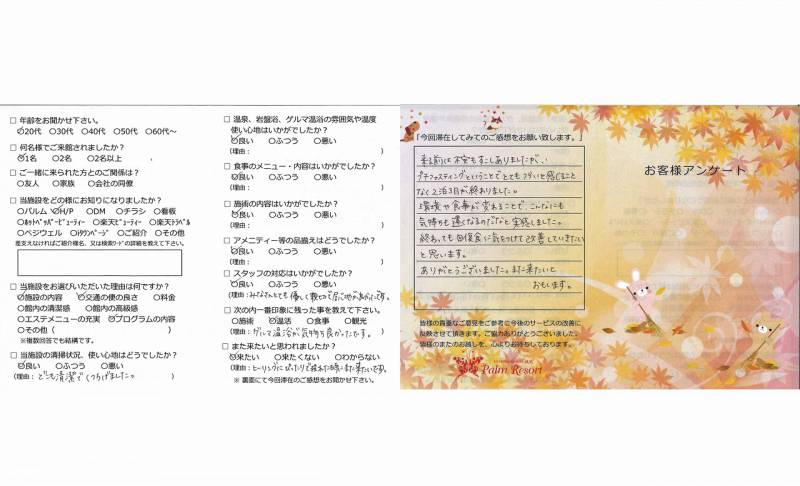 □ 年齢をお聞かせ下さい。
○20代 ○30代 ○40代 ○50代 ○60代～
□ 何名様でご来館されましたか？
○1名 ○2名 ○2名以上
□ ご一緒に来られた方とのご関係は？
○友人 ○家族 ○会社の同僚
□ 当施設をどの様にお知りになりましたか？
○パルム ○H/P ○DM ○チラシ ○看板
○ﾎｯﾄﾍﾟｯﾊﾟｰﾋﾞｭｰﾃｨｰ ○楽天ﾋﾞｭｰﾃｨｰ ○楽天ﾄﾗﾍﾞﾙ
○ベジウェル ○iﾀｳﾝﾍﾟｰｼﾞ ○ご紹介 ○その他
差支えなければご紹介様名、又は検索ﾜｰﾄﾞの詳細を教えて下さい。
□ 当施設をお選びいただいた理由は何ですか？
○施設の内容 ○交通の便の良さ ○料金
○館内の清潔感 ○館内の高級感
○エステメニューの充実 ○プログラムの内容
○その他（ ）
※複数回答でも結構です。
□ 当施設の清掃状況、使い心地はどうでしたか？
○良い ○ふつう ○悪い
(理由：とても清潔でくつろげました。)
□ 温泉、岩盤浴、ゲルマ温浴の雰囲気や温度
使い心地はいかがでしたか？
○良い ○ふつう ○悪い
(理由： )
□ 食事のメニュー・内容はいかがでしたか？
○良い ○ふつう ○悪い
(理由： )
□ 施術の内容はいかがでしたか？
○良い ○ふつう ○悪い
(理由： )
□ アメニティー等の品揃えはどうでしたか？
○良い ○ふつう ○悪い
(理由： )
□ スタッフの対応はいかがでしたか？
○良い ○ふつう ○悪い
(理由：みなさんとても優しく親切で居心地が良かったです。)
□ 次の内一番印象に残った事を教えて下さい。
○施術 ○温活 ○食事 ○観光
(理由：ゲルマ温浴が気持ち良かったです。)
□ また来たいと思われましたか？
○来たい ○来たくない ○わからない
(理由：ヒーリングにぴったりで疲れた時また来たいです。)
※ 裏面にて今回滞在のご感想をお聞かせ下さい。
「今回滞在してみてのご感想をお願い致します。」
来る前は不安もすこしありましたが、
プチファスティングということでとてもツラいと感じること
なく2泊3日が終わりました。
環境や食事が変わることで、こんなにも
気持ちも違くなるのだなと実感しました。
終わっても回復食に気をつけて改善していきたい
と思います。
ありがとうございました。また来たいと
おもいます。
皆様の貴重なご意見をご参考に今後のサービスの改善に
反映させて頂きます。ご協力ありがとうございました。
皆様のまたのお越しを、心よりお待ちしております。
Palm Resort
お客様アンケート